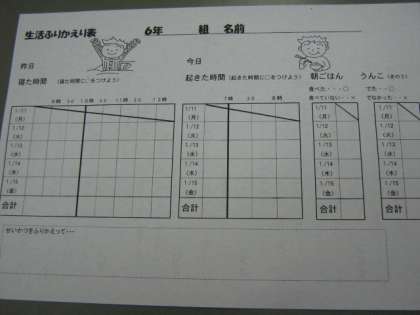 生活ふりかえり表　6年　組　名前
昨日
寝た時間（寝た時間に○をつけよう）
今日
起きた時間（起きた時間に○をつけよう）
朝ごはん
食べた・・・○
食べていない・・×
うんこ
でた・・○
でなかった・・×
1/11
(月)
1/12
(火)
1/13
(水)
1/14
(木)
1/15
(金)
合計
7時
8時
1/11
(月)
1/12
(火)
1/13
(水)
1/14
(木)
1/15
(金)
合計
1/11
(月)
1/12
(火)
1/13
(水)
1/14
(木)
1/15
(金)
合計
1/11
(月)
1/12
(火)
1/13
(水)
1/14
(木)
1/15
(金)
合計
せいかつをふりかえって・・・